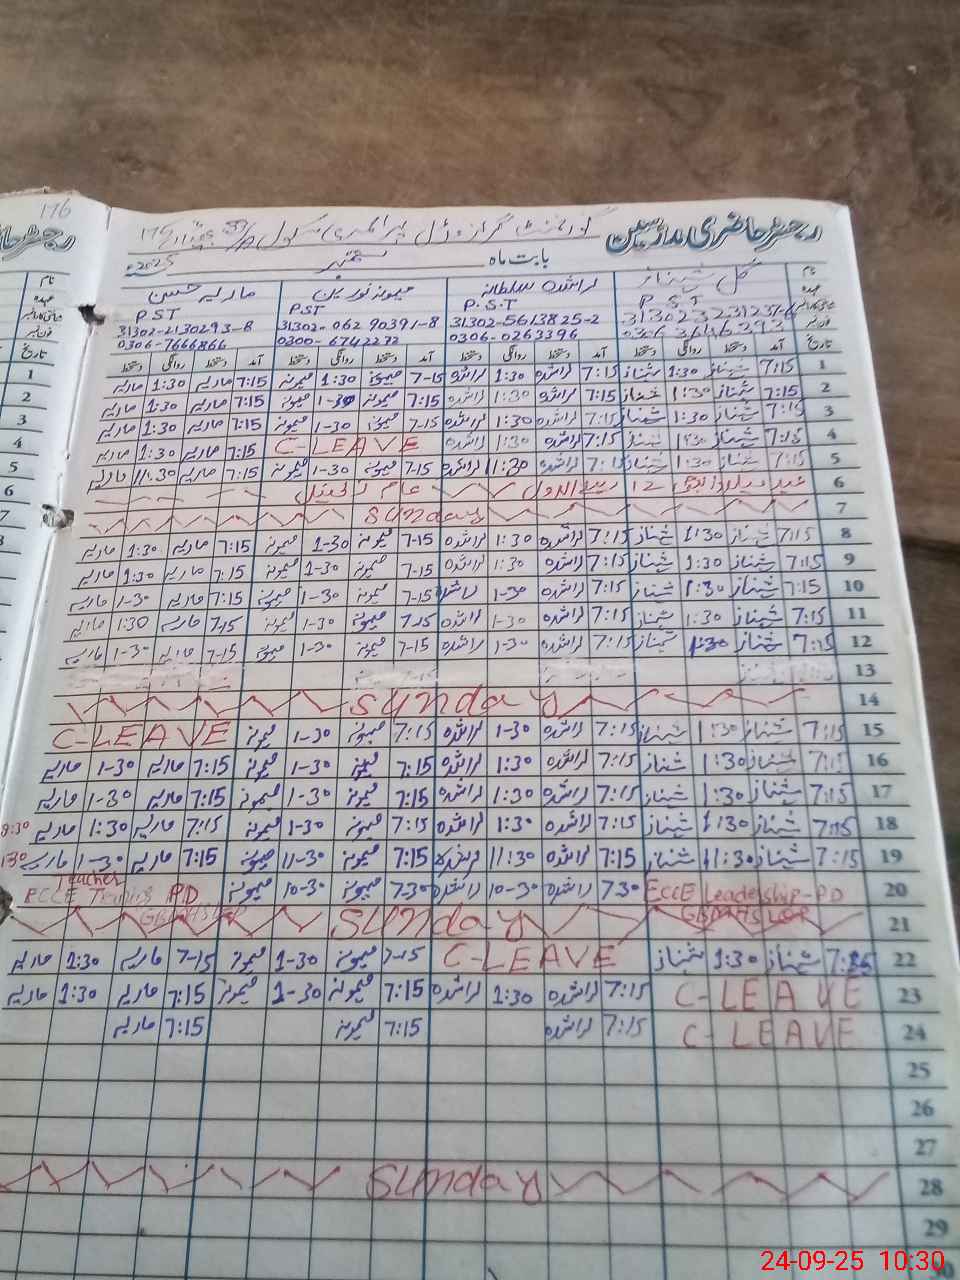 176
رجسٹر حاضری مدرسین
گورنمنٹ گرلز ماڈل پرائمری سکول
بابت ماہ ستمبر 2025ء
نام گل شہناز راشدہ سلطانہ میمونہ نورین ماریہ حسین
عہدہ P.S.T P.S.T P.ST P.ST
31302-5613825-2 31302-06290391-8 31302-2130293-8
فون نمبر 0306 3646393 0306-0263396 0300-6742272 0306-7666866
تاریخ آمد دستخط روانگی دستخط آمد دستخط روانگی دستخط آمد دستخط روانگی دستخط آمد دستخط روانگی دستخط
1 7:15 شہناز 1:30 شہناز 7:15 راشدہ 1:30 راشدہ 7-15 میمونہ 1:30 میمونہ 7:15 ماریہ 1:30 ماریہ
2 7:15 شہناز 1:30 شہناز 7:15 راشدہ 1:30 راشدہ 7:15 میمونہ 1-30 میمونہ 7:15 ماریہ 1:30 ماریہ
3 7:15 شہناز 1:30 شہناز 7:15 راشدہ 1:30 راشدہ 7-15 میمونہ 1-30 میمونہ 7:15 ماریہ 1:30 ماریہ
4 7:15 شہناز 1:30 شہناز 7:15 راشدہ 1:30 راشدہ C-LEAVE 7:15 ماریہ 1:30 ماریہ
5 7:15 شہناز 1:30 شہناز 7:15 راشدہ 11:30 راشدہ 7-15 میمونہ 1-30 میمونہ 7:15 ماریہ 11:30 ماریہ
6 عید میلاد النبی 12 ربیع الاول عام تعطیل
7 Sunday
8 7:15 شہناز 1:30 شہناز 7:15 راشدہ 1:30 راشدہ 7-15 میمونہ 1-30 میمونہ 7:15 ماریہ 1:30 ماریہ
9 7:15 شہناز 1:30 شہناز 7:15 راشدہ 1:30 راشدہ 7-15 میمونہ 1-30 میمونہ 7:15 ماریہ 1:30 ماریہ
10 7:15 شہناز 1:30 شہناز 7:15 راشدہ 1-30 راشدہ 7-15 میمونہ 1-30 میمونہ 7:15 ماریہ 1-30 ماریہ
11 7:15 شہناز 1:30 شہناز 7:15 راشدہ 1-30 راشدہ 7-15 میمونہ 1-30 میمونہ 7-15 ماریہ 1:30 ماریہ
12 7:15 شہناز 1:30 شہناز 7:15 راشدہ 1-30 راشدہ 7-15 میمونہ 1-30 میمونہ 7-15 ماریہ 1-30 ماریہ
13
14 Sunday
15 7:15 شہناز 1:30 شہناز 7:15 راشدہ 1-30 راشدہ 7:15 میمونہ 1-30 میمونہ C-LEAVE
16 7:15 شہناز 1:30 شہناز 7:15 راشدہ 1:30 راشدہ 7:15 میمونہ 1-30 میمونہ 7:15 ماریہ 1-30 ماریہ
17 7:15 شہناز 1:30 شہناز 7:15 راشدہ 1:30 راشدہ 7:15 میمونہ 1-30 میمونہ 7:15 ماریہ 1-30 ماریہ
18 7:15 شہناز 1:30 شہناز 7:15 راشدہ 1:30 راشدہ 7:15 میمونہ 1-30 میمونہ 7:15 ماریہ 1:30 ماریہ
19 7:15 شہناز 11:30 شہناز 7:15 راشدہ 11:30 راشدہ 7:15 میمونہ 11-30 میمونہ 7:15 ماریہ 1-30 ماریہ
20 ECCE Leadership-PD 730 راشدہ 10-30 راشدہ 730 میمونہ 10-30 میمونہ Teacher ECCE Training PD
21 Sunday
22 7:15 شہناز 1:30 شہناز C-LEAVE 7-15 میمونہ 1-30 میمونہ 7-15 ماریہ 1:30 ماریہ
23 C-LEAVE 7:15 راشدہ 1:30 راشدہ 7:15 میمونہ 1-30 میمونہ 7:15 ماریہ 1:30 ماریہ
24 C-LEAVE 7:15 راشدہ 7:15 میمونہ 7:15 ماریہ
25
26
27
28 Sunday
29
24-09-25 10:30